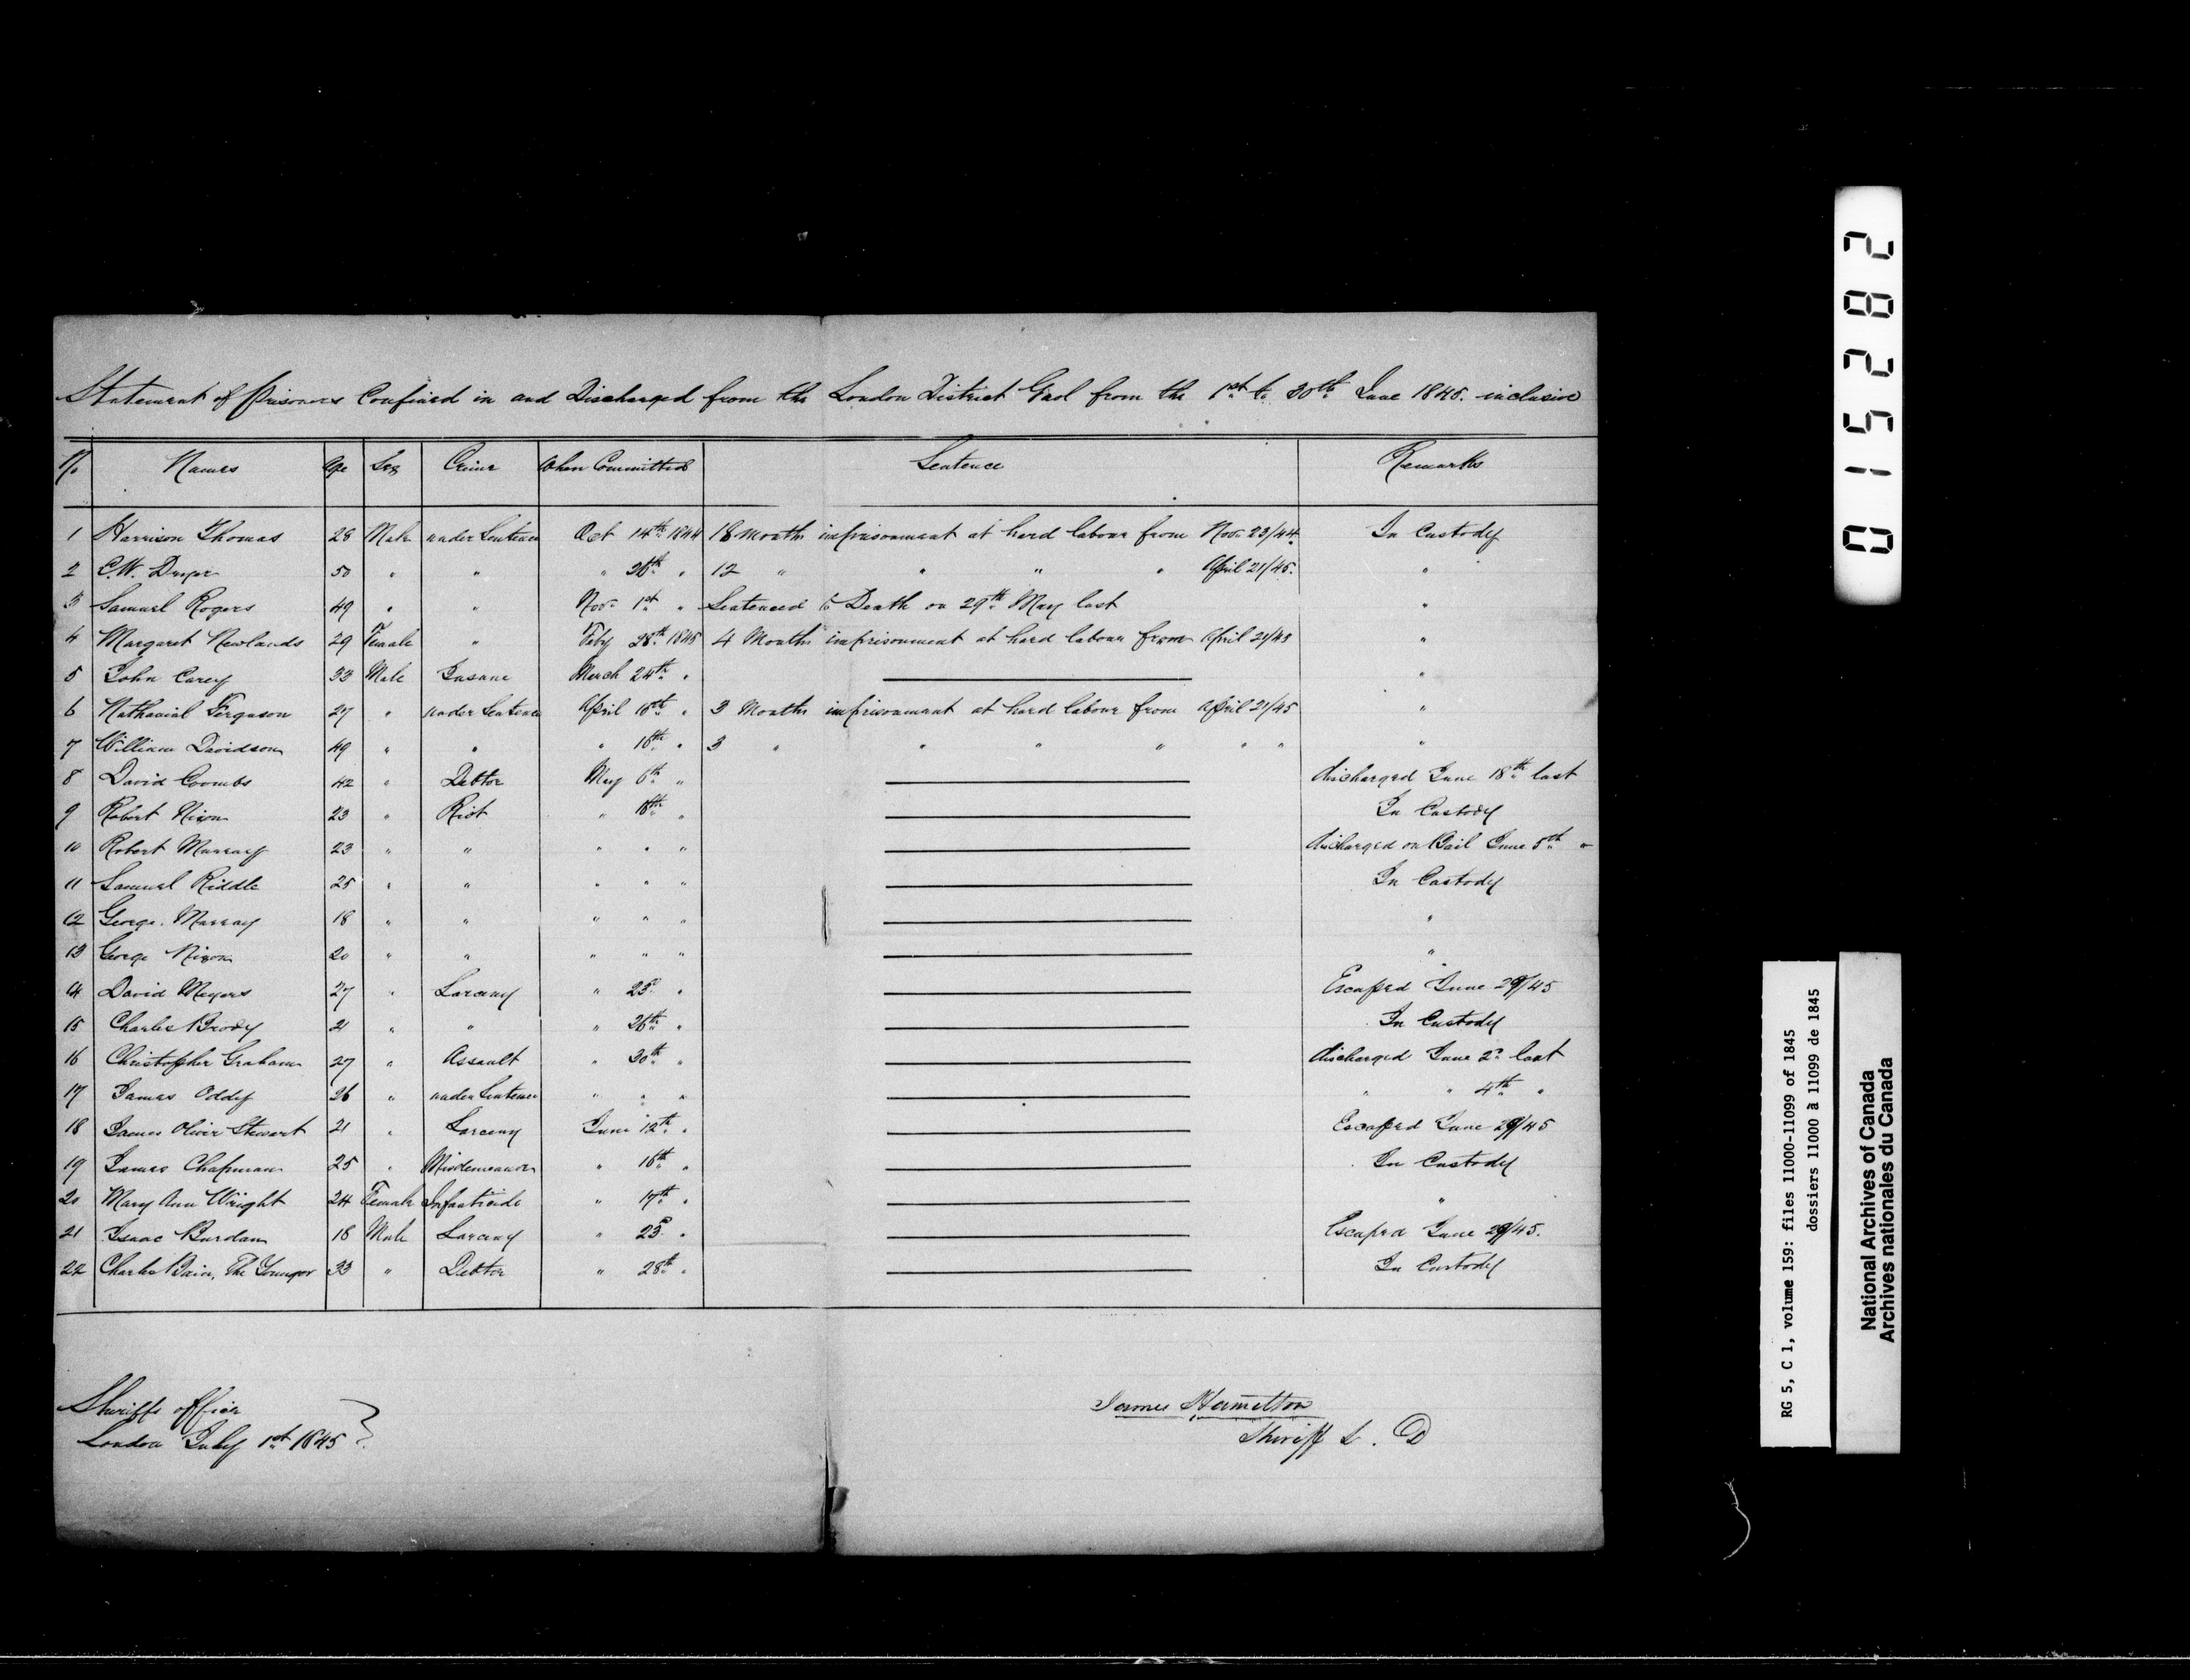 Statement of Prisoners Confined in and Discharged from the London District Gaol from the 1st to 30th June 1845. inclusive
No Names Age Sex Crime When Committed Sentence Remarks
1 Harrison Thomas 28 Male under Sentence Oct 14th 1844 18 Months imprisonment at hard labour from Nov. 23/44 In Custody
2 C.W. 50 " " " 26th " 12 " " " " April 21/45. "
3 Samuel Rogers 49 " " Nov. 1st " Sentenced to Death on 29th May last "
4 Margaret Newlands 29 Female " Feby 28th 1845 4 Months imprisonment at hard labour from April 21/45 "
5 John Carey 33 Male Insane March 24th " "
6 Nathanial Ferguson 27 " under Sentence April 10th " 3 Months imprisonment at hard labour from April 21/45 "
7 William Davidson 49 " " " 16th " 3 " " " " " " "
8 David Coombs 42 " Debtor May 6th " discharged June 18th last
9 Robert Nixon 23 " Riot " 18th " In Custody
10 Robert Murray 23 " " " " " discharged on Bail June 5th "
11 Samuel Riddle 25 " " " " " In Custody
12 George Murray 18 " " " " " "
13 George Nixon 20 " " " " " "
14 David Meyers 27 " Larceny " 23d " Escaped June 29/45
15 Charles Brody 21 " " " 26th " In Custody
16 Christopher Graham 27 " Assault " 30th " discharged June 2d last
17 James Oddy 26 " under Sentence " " " " " 4th "
18 James Oliver Stewart 21 " Larceny June 12th " Escaped June 29/45
19 James Chapman 25 " Misdemeanor " 16th " In Custody
20 Mary Ann Wright 24 Female Infanticide " 17th " "
21 Isaac Burdan 18 Male Larceny " 23d " Escaped June 29/45.
22 Charles Bain, The Younger 33 " Debtor " 28th " In Custody
Sheriffs office
London July 1st 1845
James Hamilton
Sheriff L. D
015282
RG 5, C 1, volume 159: files 11000-11099 of 1845
dossiers 11000 à 11099 de 1845
National Archives of Canada
Archives nationales du Canada